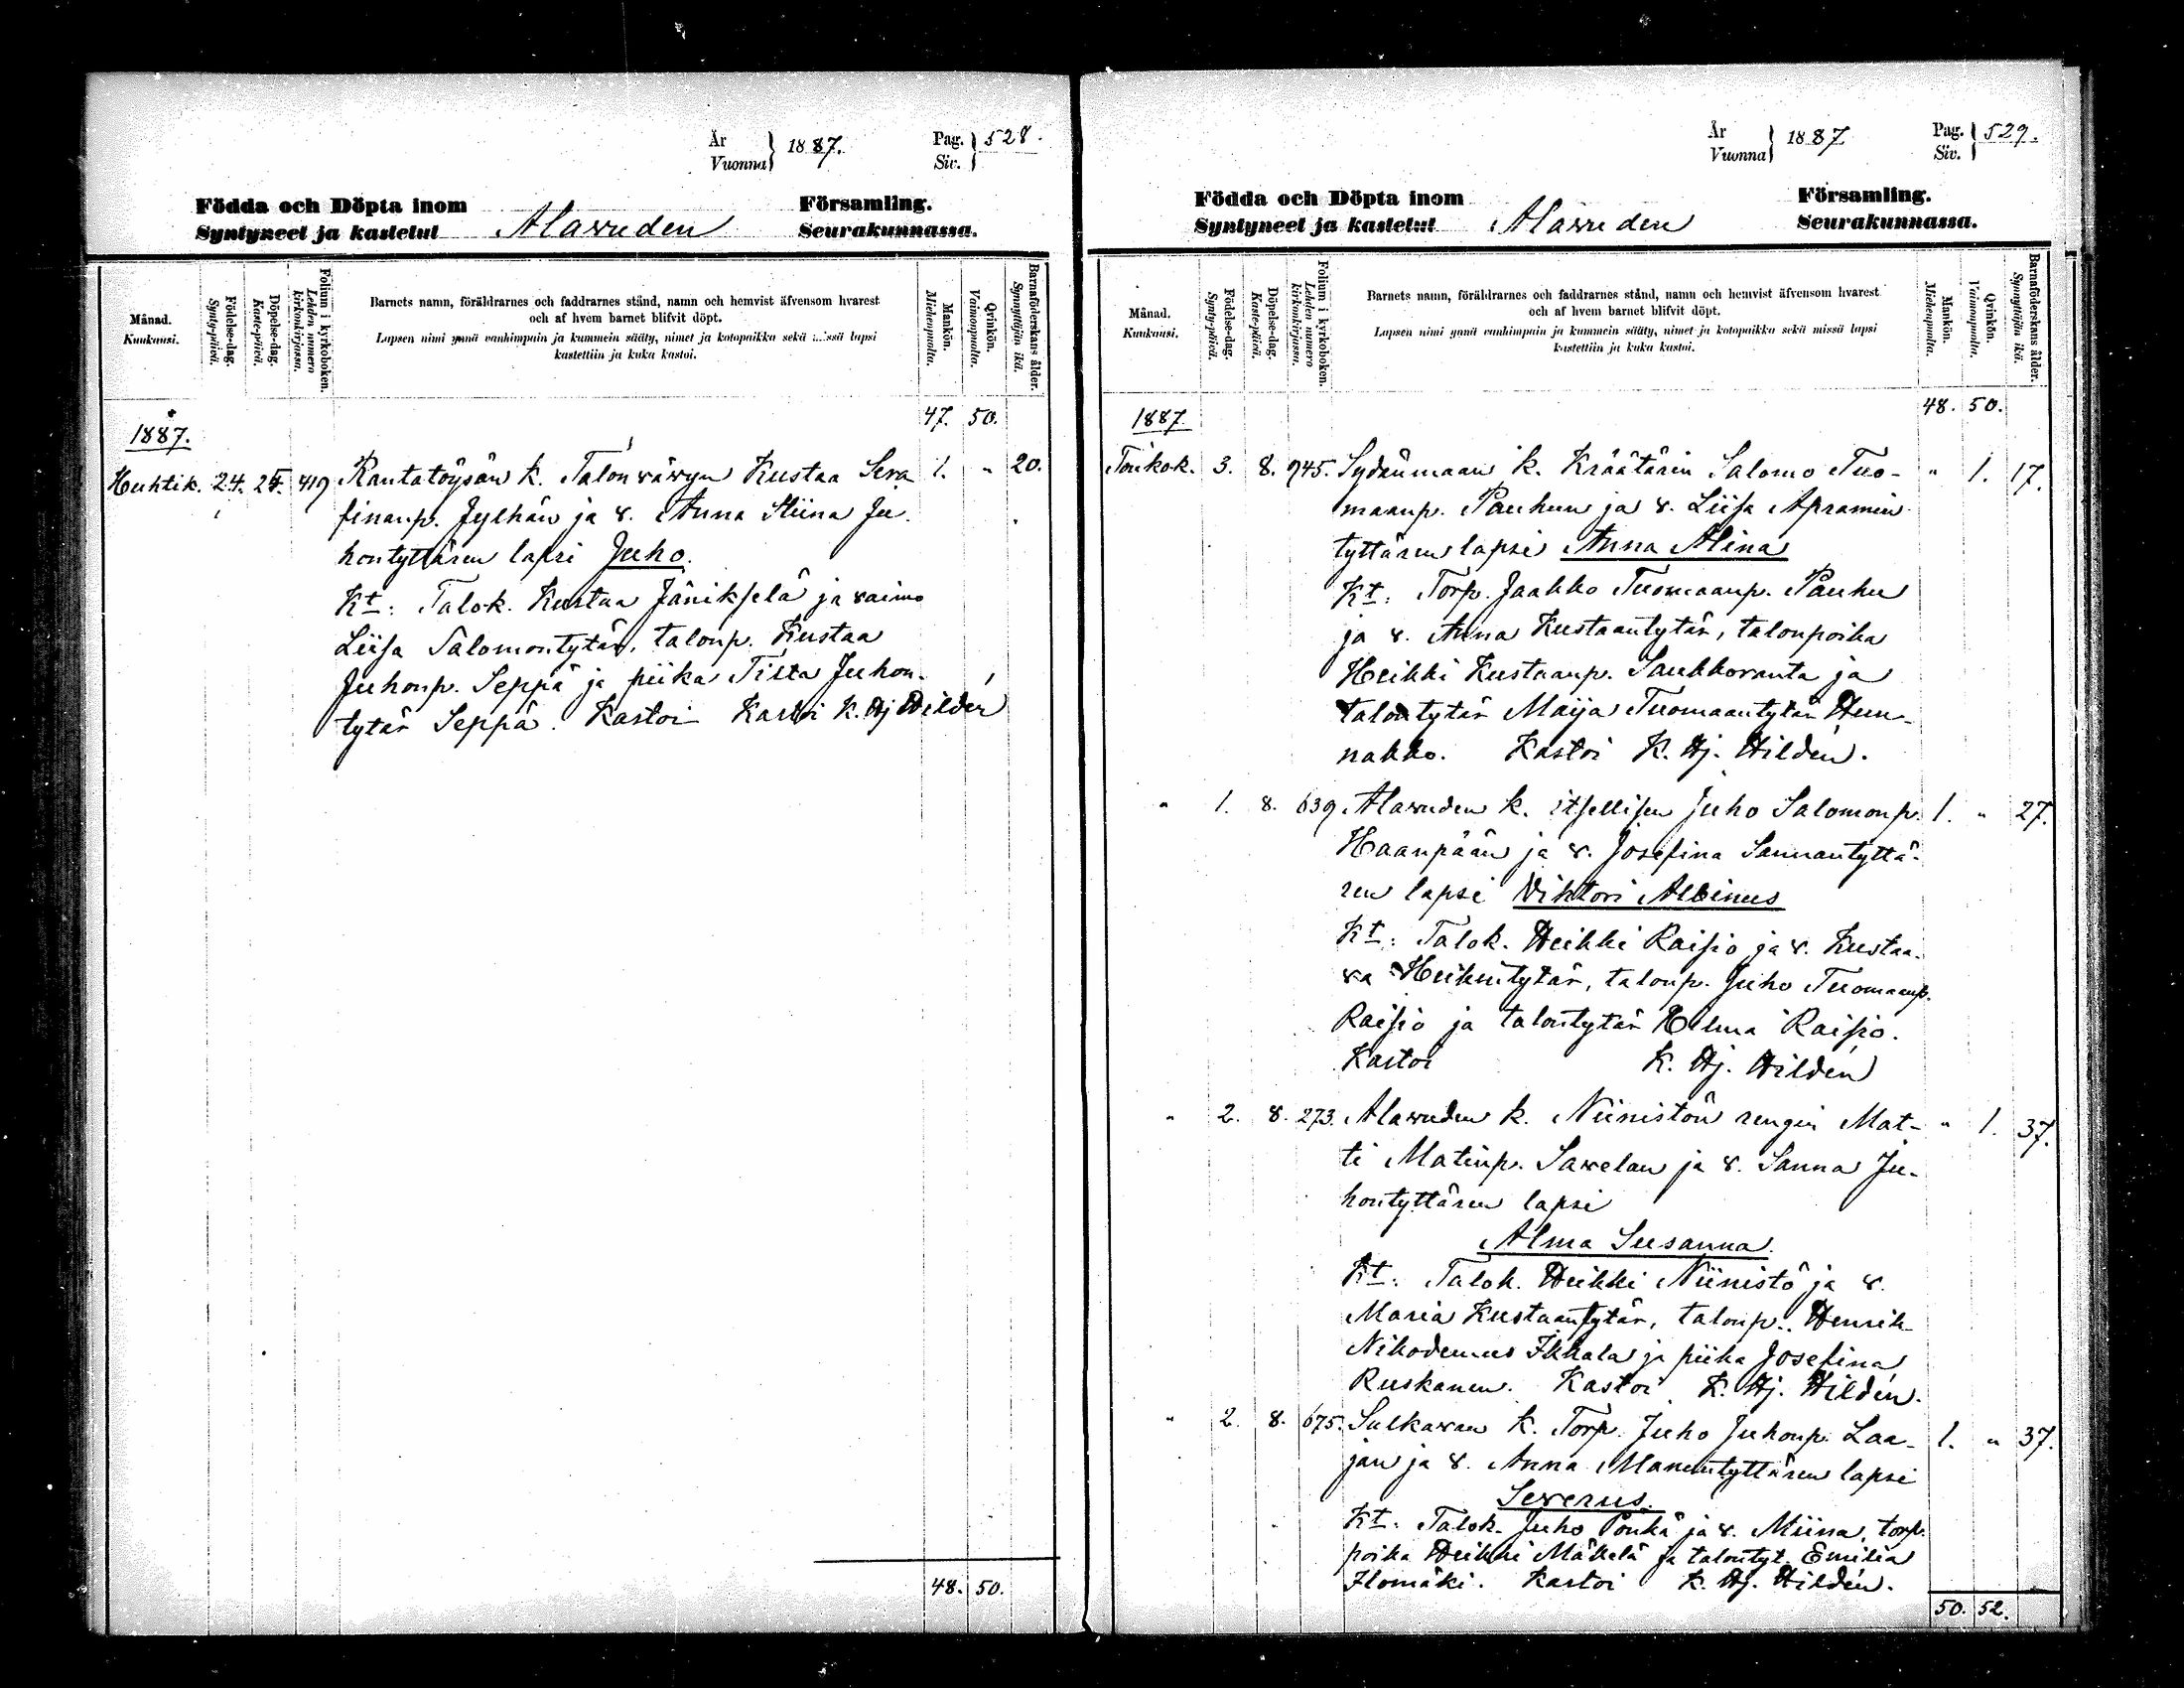 År
Vuonna } 1887.
Pag.
Siv. } 528.
Födda och Döpta inom
Syntyneet ja kastetut
Alavuden
Församling.
Seurakunnassa.
Månad.
Kuukausi.
Födelse-dag.
Synty-päivä.
Döpelse-dag.
Kaste-päivä.
Folium i kyrkoboken.
Lehden numero
kirkonkirjassa.
Barnets namn, föräldrarnes och faddrarnes stånd, namn och hemvist äfvensom hvarest
och af hvem barnet blifvit döpt.
Lapsen nimi ynnä vanhimpain ja kummein sääty, nimet ja kotopaikka sekä missä lapsi
kastettiin ja kuka kastoi.
Mankön.
Miehenpuolta.
Qvinkön.
Vaimonpuolta.
Barnaföderskans ålder.
Synnyttäjän ikä.
1887. 47. 50.
Huhtik. 24. 25. 419 Rantatöysän k. Talon vävyn Kustaa Sera 1. " 20.
finanp. Jylhän ja v. Anna Stiina Ju-
hontyttären lapsi Juho.
Kt: Talok. Kustaa Jäniksela ja vaimo
Liisa Salomontytär, talonp. Kustaa
Juhonp. Seppä ja piika Tilta Juhon-
tytär Seppä. Kastoi Kastoi K. Hj Hildén
48. 50.
År
Vuonna } 1887
Pag.
Siv. } 529.
Födda och Döpta inom
Syntyneet ja kastetut
Alavuden
Församling.
Seurakunnassa.
Månad.
Kuukausi.
Födelse-dag.
Synty-päivä.
Döpelse-dag.
Kaste-päivä.
Folium i kyrkoboken.
Lehden numero
kirkonkirjassa.
Barnets namn, föräldrarnes och faddrarnes stånd, namn och hemvist äfvensom hvarest
och af hvem barnet blifvit döpt.
Lapsen nimi ynnä vanhimpain ja kummein sääty, nimet ja kotopaikka sekä missä lapsi
kastettiin ja kuka kastoi.
Mankön.
Miehenpuolta.
Qvinkön.
Vaimonpuolta.
Barnaföderskans ålder.
Synnyttäjän ikä.
1887. 48. 50.
Toukok. 3. 8. 945. Sydänmaan k. Kräätärin Salomo Tuo- " 1. 17.
maanp. Pauhun ja v. Liisa Apramin
tyttären lapsi Anna Alina
Kt: Torp. Jaakko Tuomaanp. Pauhu
ja v. Anna Kustaantytär, talonpoika
Heikki Kustaanp. Saukkoranta ja
talontytär Maija Tuomaantytär Hun-
nakko. Kastoi K. Hj. Hildén.
" 1. 8. 639. Alavuden k. itsellisen Juho Salomonp. 1. " 27.
Haanpään ja v. Josefina Sannantyttä-
ren lapsi Viktori Albinus
Kt: Talok. Heikki Raisio ja v. Kustaa-
va Heikintytär, talonp. Juho Tuomaanp.
Raisio ja talontytär Hilma Raisio.
Kastoi K. Hj. Hildén
" 2. 8. 273. Alavuden k. Niinistön rengin Mat- " 1. 37.
ti Matinp. Savelan ja v. Sanna Ju-
hontyttären lapsi
Alma Susanna.
Kt: Talok. Heikki Niinistö ja v.
Maria Kustaantytär, talonp. Henrik
Nikodemus Ikkala ja piika Josefina
Ruskanen. Kastoi K. Hj. Hildén.
" 2. 8. 675. Sulkavan k. Torp. Juho Juhonp. Laa- 1. " 37.
jan ja v. Anna Manuntyttären lapsi
Severus.
Kt: Talok. Juho Pönkä ja v. Miina, torp.
poika Heikki Mäkelä ja talontyt. Emilia
Ilomäki. Kastoi K. Hj. Hildén.
50. 52.